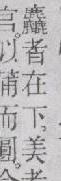 麤者在下、美者
以蒲而圓。